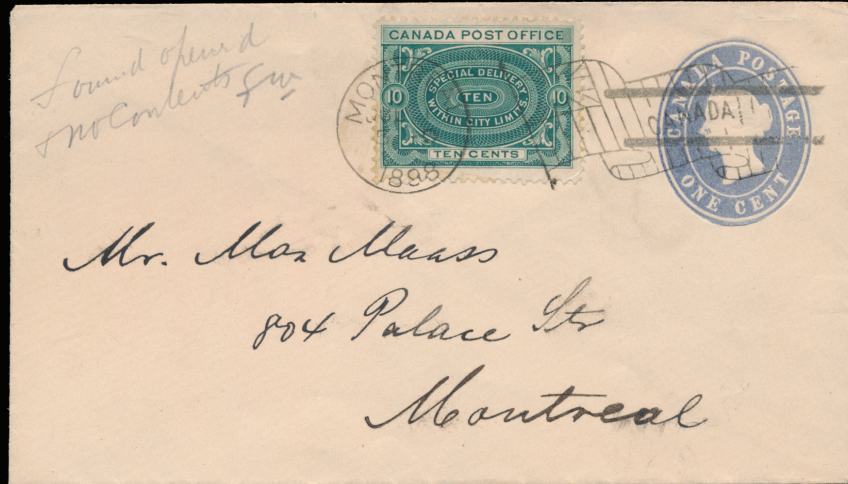 Found opened
& no Contents
CANADA POST OFFICE
SPECIAL DELIVERY
10 TEN 10
WITHIN CITY LIMITS
TEN CENTS
MON
1898
CANADA
CANADA POSTAGE
ONE CENT
Mr. Max Maass
804 Palace Str
Montreal